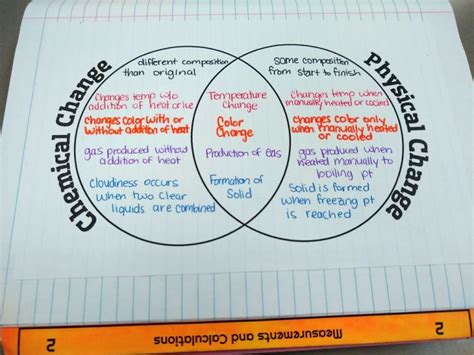 Chemical Change
different composition
than original
changes temp w/o
addition of heat or ice
changes color with or
without addition of heat
gas produced without
addition of heat
Cloudiness occurs
when two clear
liquids are combined
Temperature
Change
Color
Change
Production of Gas
Formation of
Solid
Physical Change
Same composition
from start to finish
Changes temp when
manually heated or cooled
changes color only
when manually heated
or cooled
gas produced when
heated manually to
boiling pt
Solid is formed
when freezing pt
is reached
2
Measurements and Calculations
2